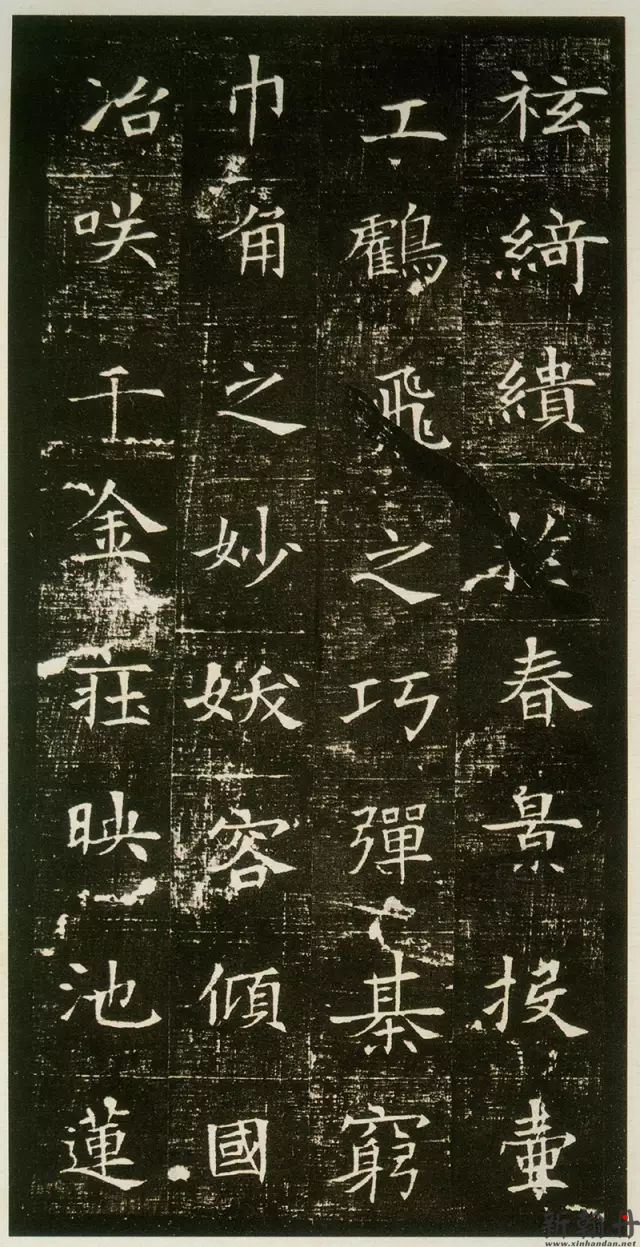 袨綺繢於春景投壺
工鸖飛之巧彈棊窮
巾角之妙娥容傾國
冶咲千金莊映池蓮
新翰丹
www.xinhandan.net